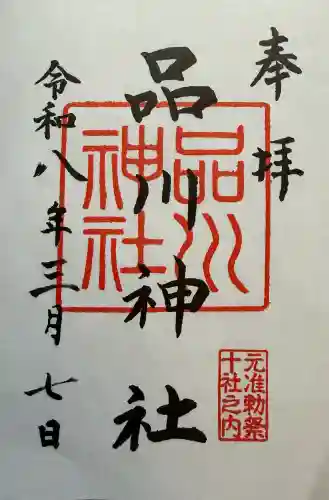 奉拝
品川神社
品川神社
元准勅祭
十社之内
令和八年三月七日